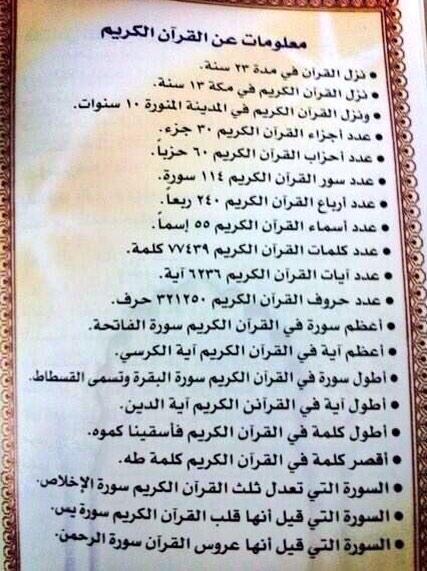 معلومات عن القرآن الكريم
• نزل القرآن في مدة ٢٣ سنة.
• نزل القرآن الكريم في مكة ١٣ سنة.
• ونزل القرآن الكريم في المدينة المنورة ١٠ سنوات.
• عدد أجزاء القرآن الكريم ٣٠ جزء.
• عدد أحزاب القرآن الكريم ٦٠ حزباً.
• عدد سور القرآن الكريم ١١٤ سورة.
• عدد أرباع القرآن الكريم ٢٤٠ ربعاً.
• عدد أسماء القرآن الكريم ٥٥ إسماً.
• عدد كلمات القرآن الكريم ٧٧٤٣٩ كلمة.
• عدد آيات القرآن الكريم ٦٢٣٦ آية.
• عدد حروف القرآن الكريم ٣٢١٢٥٠ حرف.
• أعظم سورة في القرآن الكريم سورة الفاتحة.
• أعظم آية في القرآن الكريم آية الكرسي.
• أطول سورة في القرآن الكريم سورة البقرة وتسمى القسطاط.
• أطول آية في القرآنن الكريم آية الدين.
• أطول كلمة في القرآن الكريم فأسقينا كموه.
• أقصر كلمة في القرآن الكريم كلمة طه.
• السورة التي تعدل ثلث القرآن الكريم سورة الإخلاص.
• السورة التي قيل أنها قلب القرآن الكريم سورة يس.
• السورة التي قيل أنها عروس القرآن سورة الرحمن.